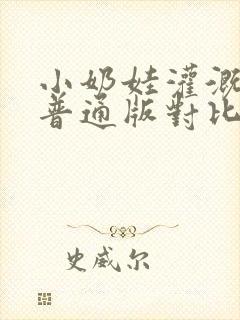 小奶娃灌溉
普通版對比
史威尔